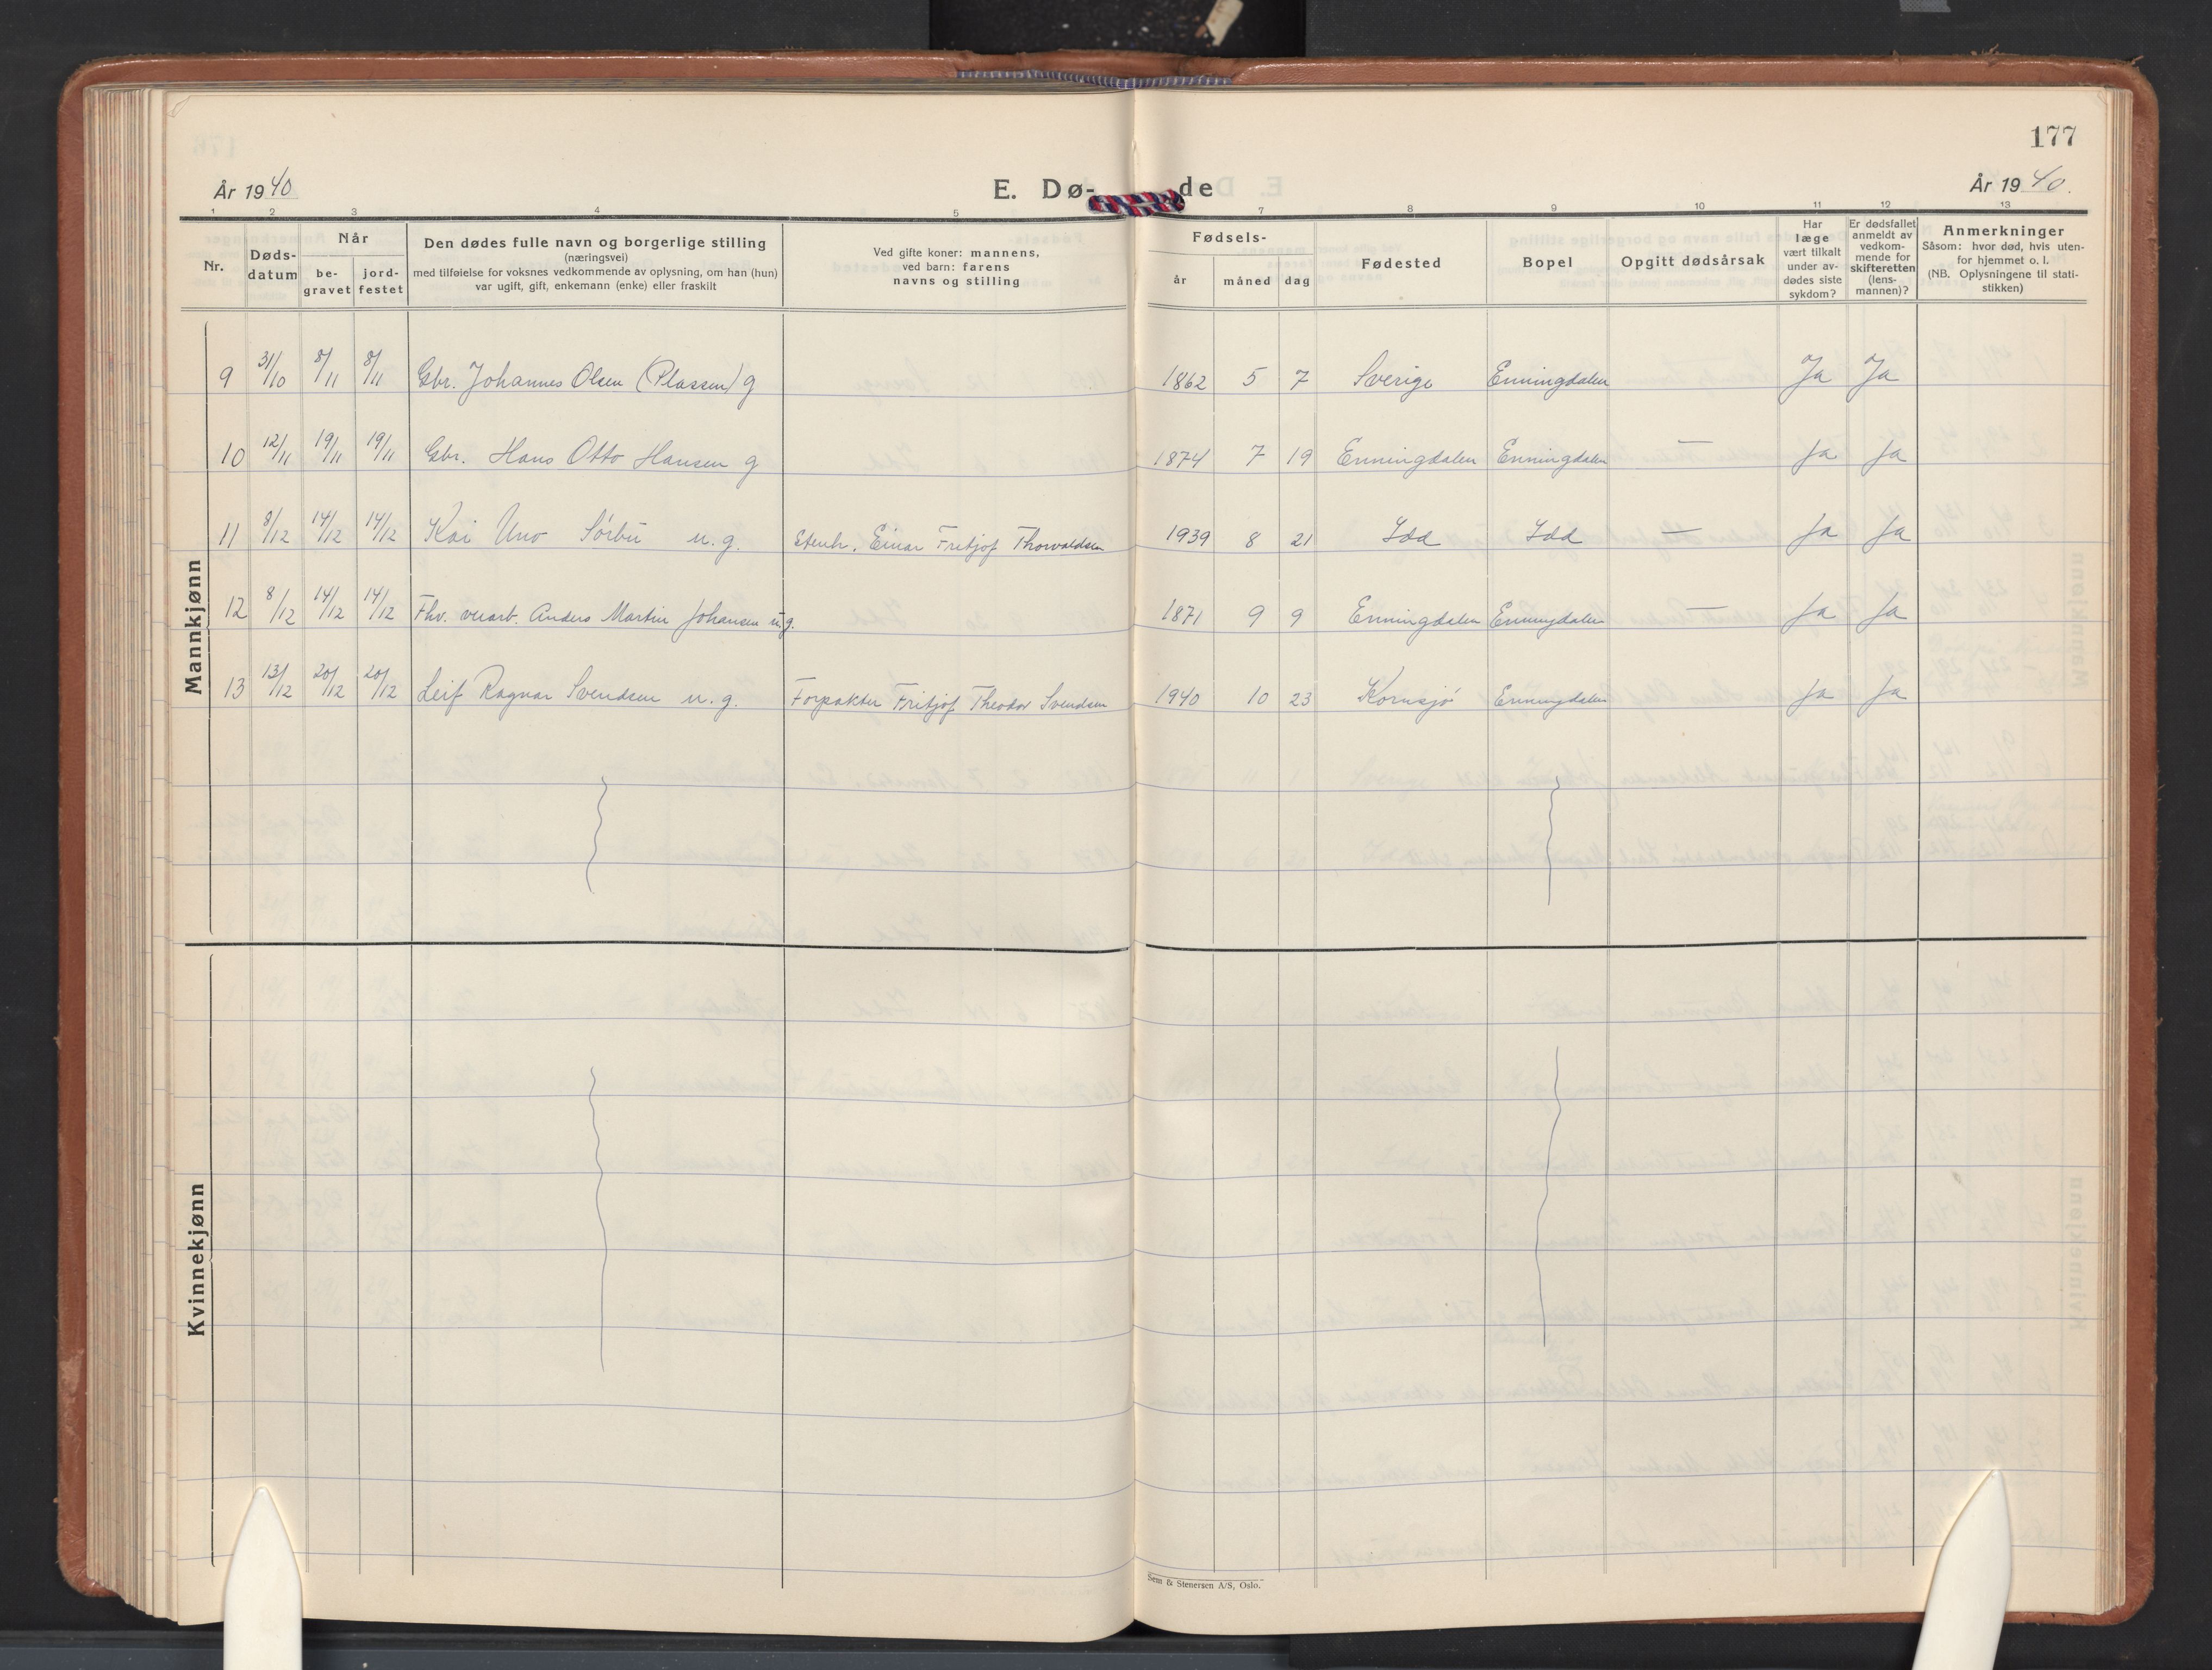 177
År 1940
E. Dø-
de
År 1940.
1 2 3 4 5 7 8 9 10 11 12 13
Nr.
Døds-
datum
Når
be-
gravet
jord-
festet
Den dødes fulle navn og borgerlige stilling
(næringsvei)
med tilføielse for voksnes vedkommende av oplysning, om han (hun)
var ugift, gift, enkemann (enke) eller fraskilt
Ved gifte koner: mannens,
ved barn: farens
navns og stilling
Fødsels-
år
måned
dag
Fødested
Bopel
Opgitt dødsårsak
Har
læge
vært tilkalt
under av-
dødes siste
sykdom?
Er dødsfallet
anmeldt av
vedkom-
mende for
skifteretten
(lens-
mannen)?
Anmerkninger
Såsom: hvor død, hvis uten-
for hjemmet o. l.
(NB. Oplysningene til stati-
stikken)
Mannkjønn
9 31/10 8/11 8/11 Gbr. Johannes Olsen (Plassen) g 1862 5 7 Sverige Enningdalen Ja Ja
10 12/11 19/11 19/11 Gbr. Hans Otto Hansen g 1874 7 19 Enningdalen Enningdalen — Ja Ja
11 8/12 14/12 14/12 Kai Uno Sørbü u. g. Stenh. Einar Fritjof Thorvaldsen 1939 8 21 Idd Idd — Ja Ja
12 8/12 14/12 14/12 Fhv. veiarb. Anders Martin Johansen u. g. 1871 9 9 Enningdalen Enningdalen — Ja Ja
13 13/12 20/12 20/12 Leif Ragnar Svendsen u. g. Forpakter Fritjof Theodor Svendsen 1940 10 23 Kornsjø Enningdalen Ja Ja
Kvinnekjønn
Sem & Stenersen A/S, Oslo.